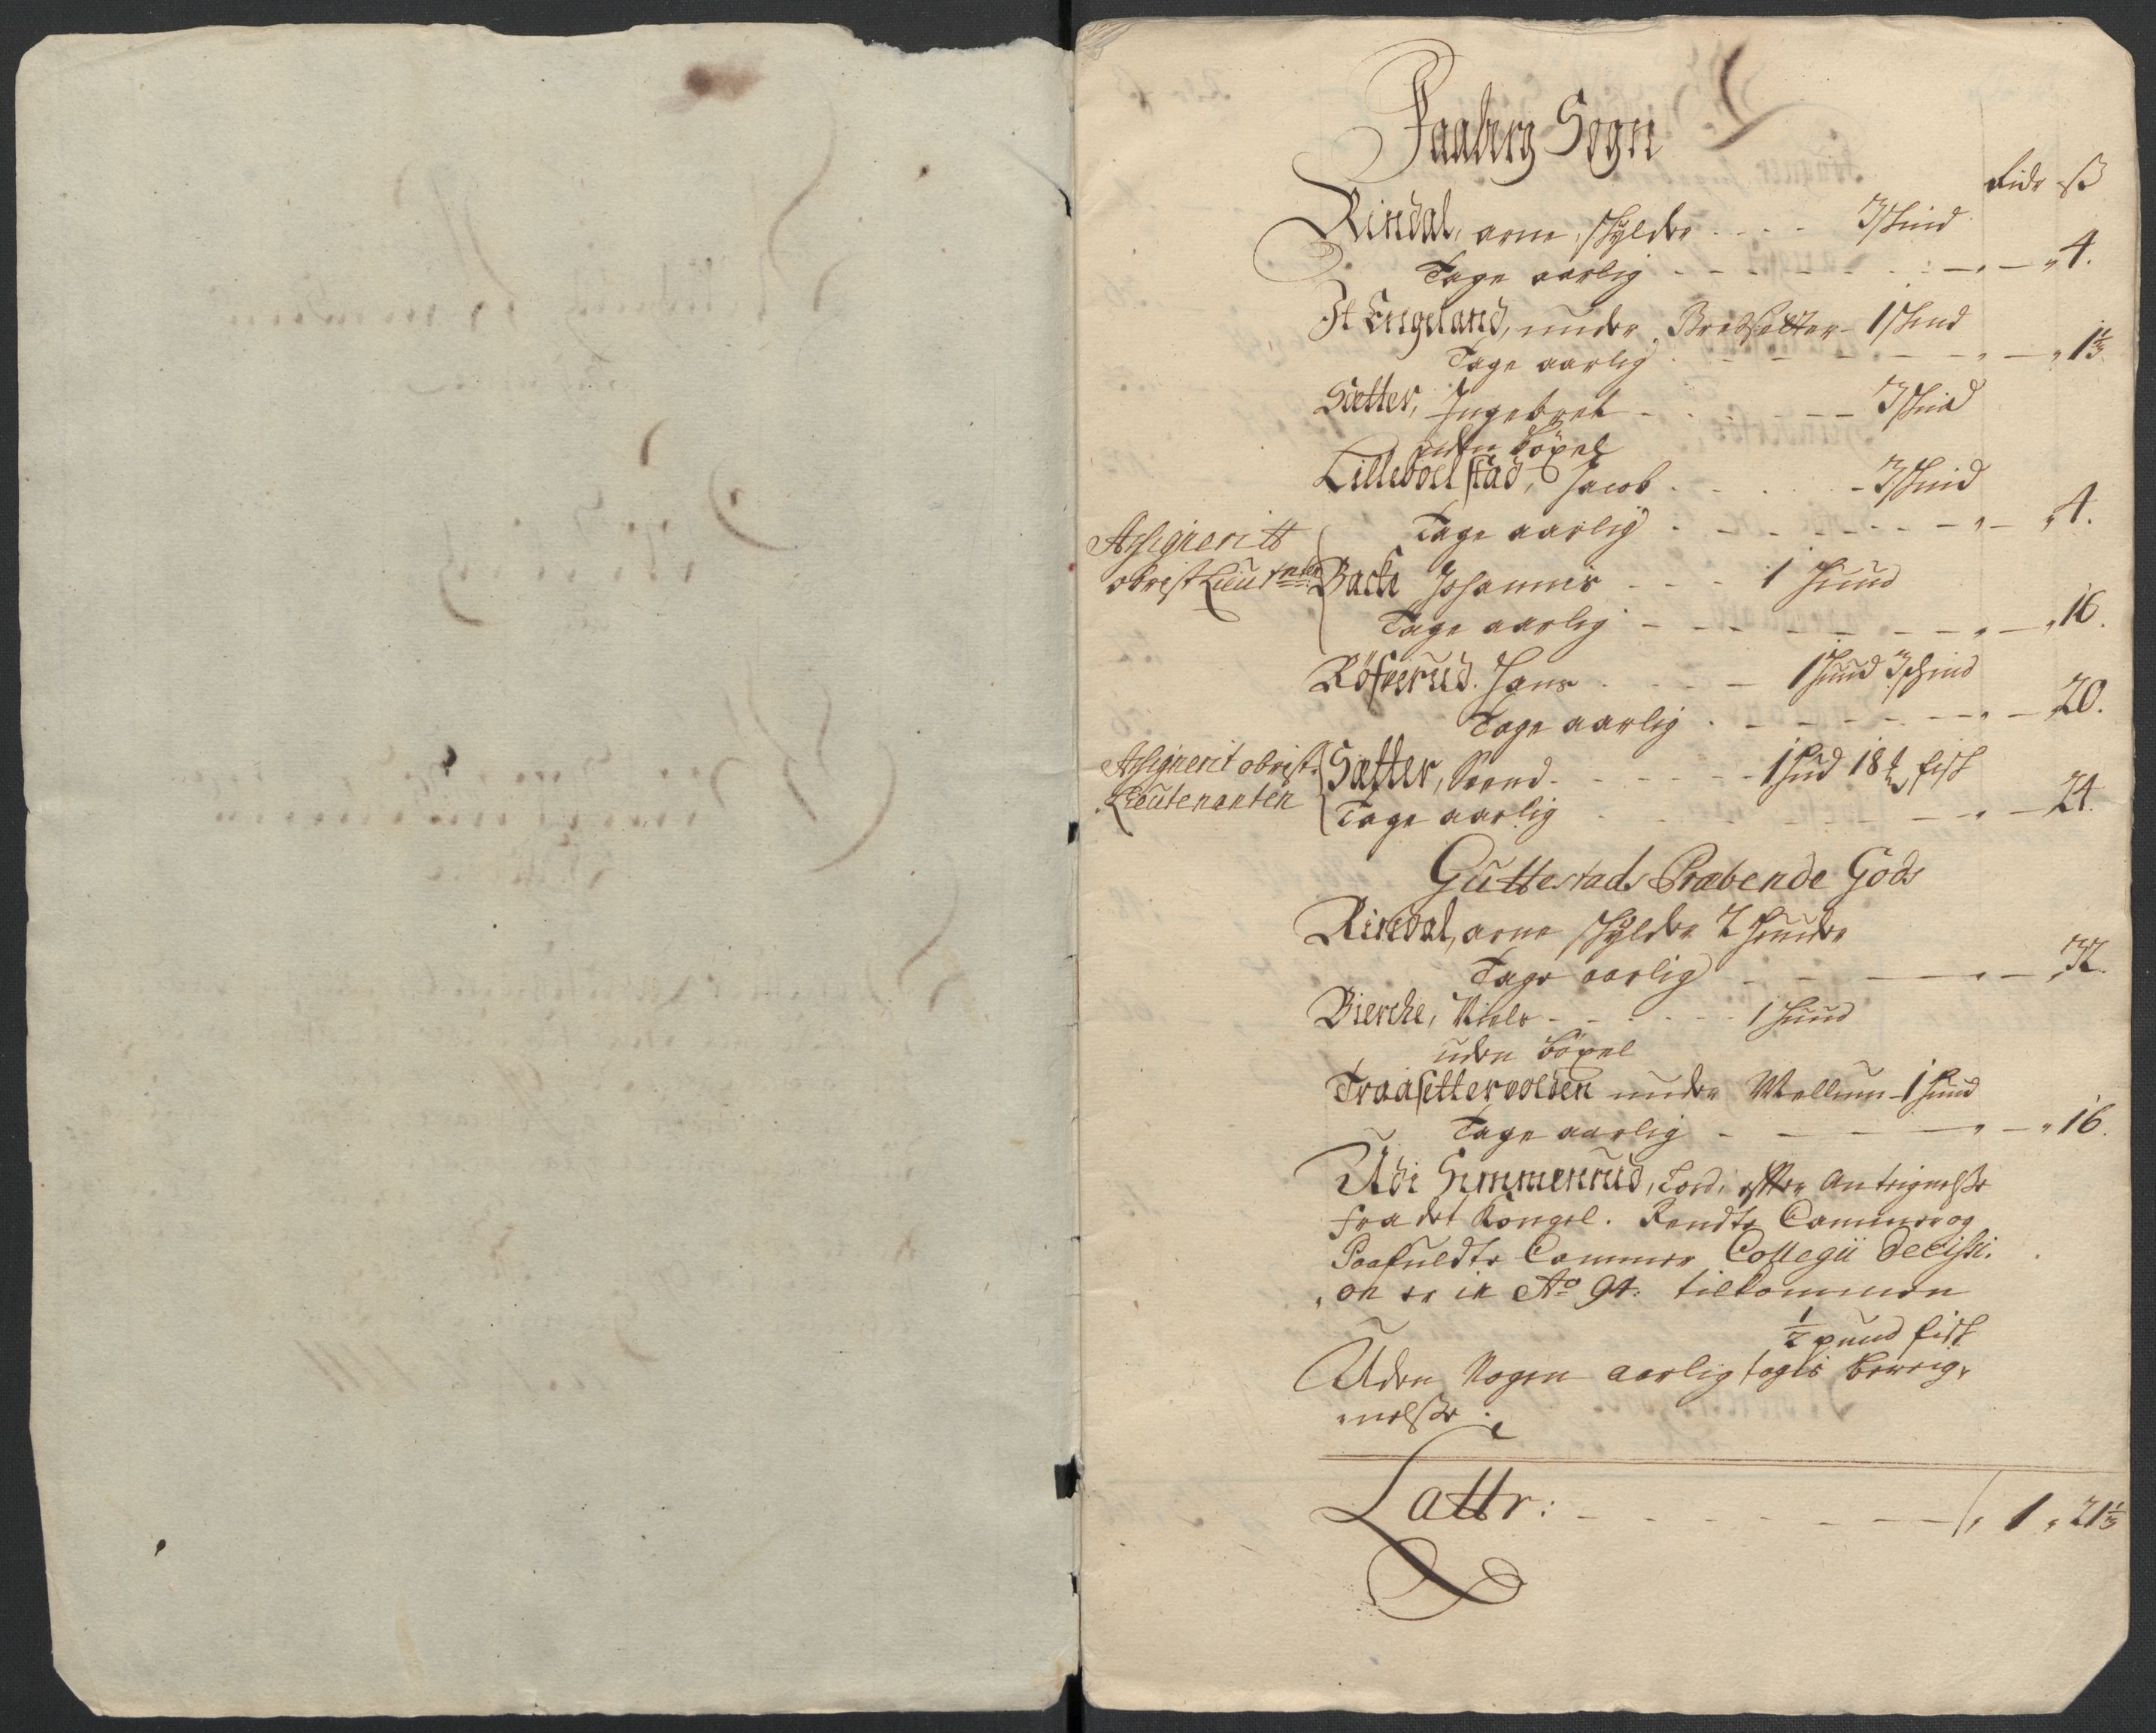 Faaberg Sogn
Rdr ß
Rindal, arne, skylder - - - - 3 skind
Tage aarlig - - - - - - - - 4.
It Engeland, under Bredsetter - 1 skind
Tage aarlig - - - - - - - 1 1/3
Sætter, Ingebret - - - - - 3 skind
uden böxel
Lilleboelstad, Jacob - - - - 3 skind
Tage aarlig - - - - - - - 4.
Assignerit
obrist Lieut
Bache Johannis - - - 1 huud
Tage aarlig - - - - - - - 16.
Röfnerud. Hans - - - - 1 huud 3 skind
Tage aarlig - - - - - - - 20.
Assignerit obrist
Lieutenanten
Sætter, Trond - - - - - 1 hud 18 fisk
Tage aarlig - - - - - - - 24.
Guttestads Præbende Gods
Rindal, arne skylder 2 huuder
Tage aarlig - - - - - 32.
Bierche, Niels - - - - - 1 huud
uden böxel
Traasettervolden under Mellum - 1 huud
Tage aarlig - - - - - 16.
Udi Simmenrud, Tord, efter Antegnelse
fra det Kongel. Rendte Cammer og
Paafuldte Cammer Collegii Decissi-
on er in Ao 94. tilkommen
1/2 pund fisk
Uden Nogen aarlig tages bereig-
nelse.
Lattr: - - - - - - - - 1 „ 21 1/3